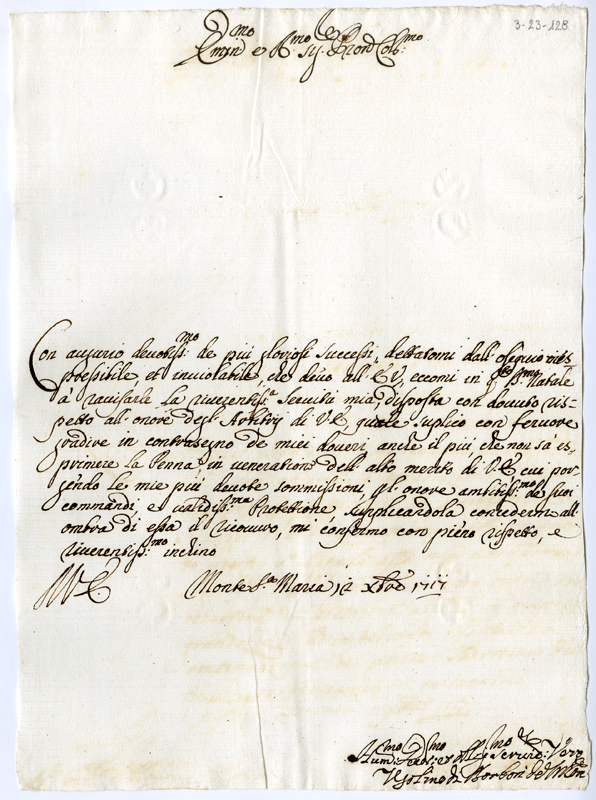 3-23-128
Em.mo e R.mo Sig. Pron Col.mo
Con augurio devotiss.mo de piu gloriosi successi, dettatomi dall' osequio
inviolabile, che devo all' E.V., eccomi in q.sto S.mo Natale
à ravisarle la riverentiss.a servitù mia, disposta con dovuto ris-
petto all' onore degl' Arbitrij di V.E. quale suplico con fervore
gradire in contrasegno de miei doveri anche il più che non sà es-
primere la Penna, in veneratione dell' alto merito di V.E. cui por-
gendo le mie più devote sommissioni, gl' onore ambitiss.mo de suoi
commandi, e validiss.ma Protettione supplicandola concederm all'
ombra di essa il ricovero, mi confermo con pieno rispetto, e
riverentiss.mo inchino
D V. E. Monte S.ta Maria 12 Xbre 1717
Um.mo Dev.mo et Obl.mo Serv.re Vero
Ugolino di Borbon del Monte